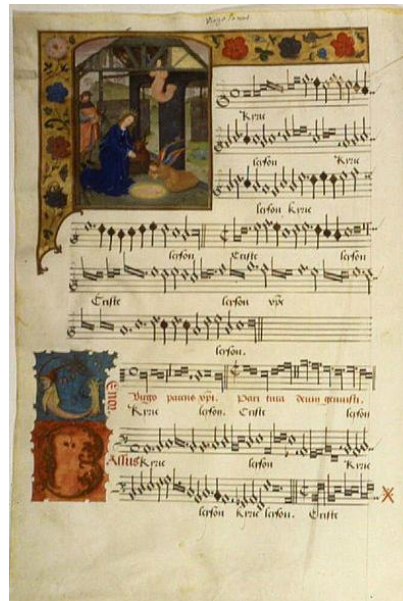 Kyrie
leyson Kyrie
leyson Kyrie
leyson Criste leyson
Criste leyson xpe
leyson.
Tenor
Virgo parens xpi. Pari tuta deum genuisti.
Kyrie leyson. Criste leyson
Bassus Kyrie leyson Kyrie
leyson Kyrie leyson. Criste